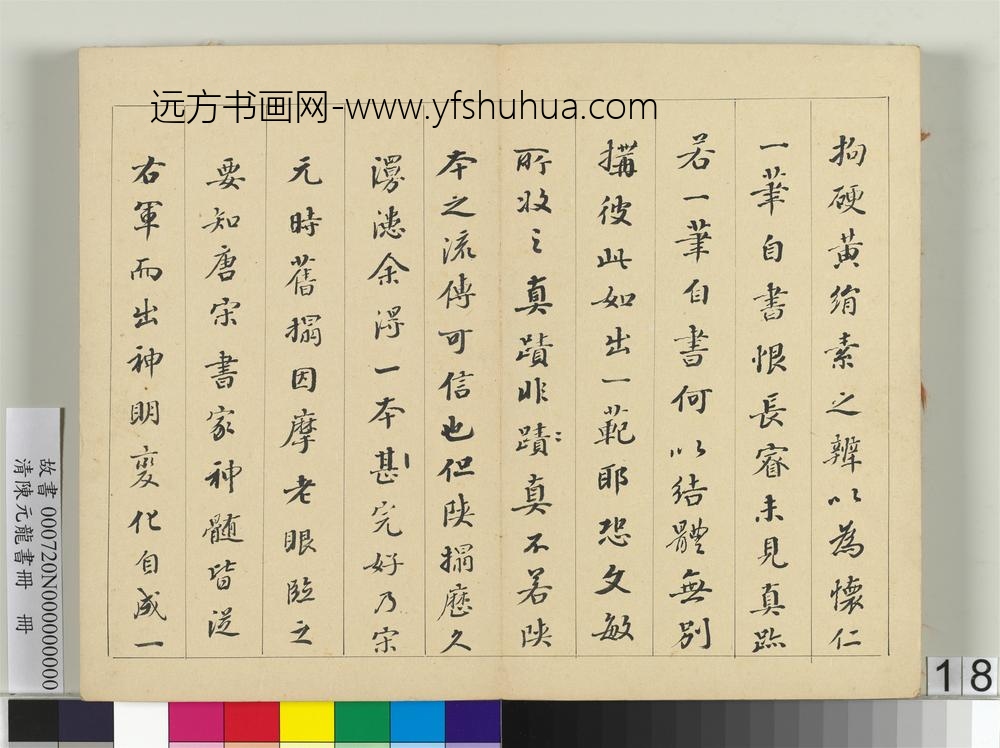 远方书画网-www.yfshuhua.com
拘硬黃絹素之辨以為懷仁
一筆自書恨長睿未見真跡
若一筆自書何以結體無別
搆彼此如出一範耶恐文敏
所收之真蹟非蹟真不若陝
本之流傳可信也但陝搨歷久
漫漶余得一本甚完好乃宋
元時舊搨因摩老眼臨之
要知唐宋書家神髓皆從
右軍而出神明變化自成一
故書 000720N000000000
清陳元龍書冊 冊
18